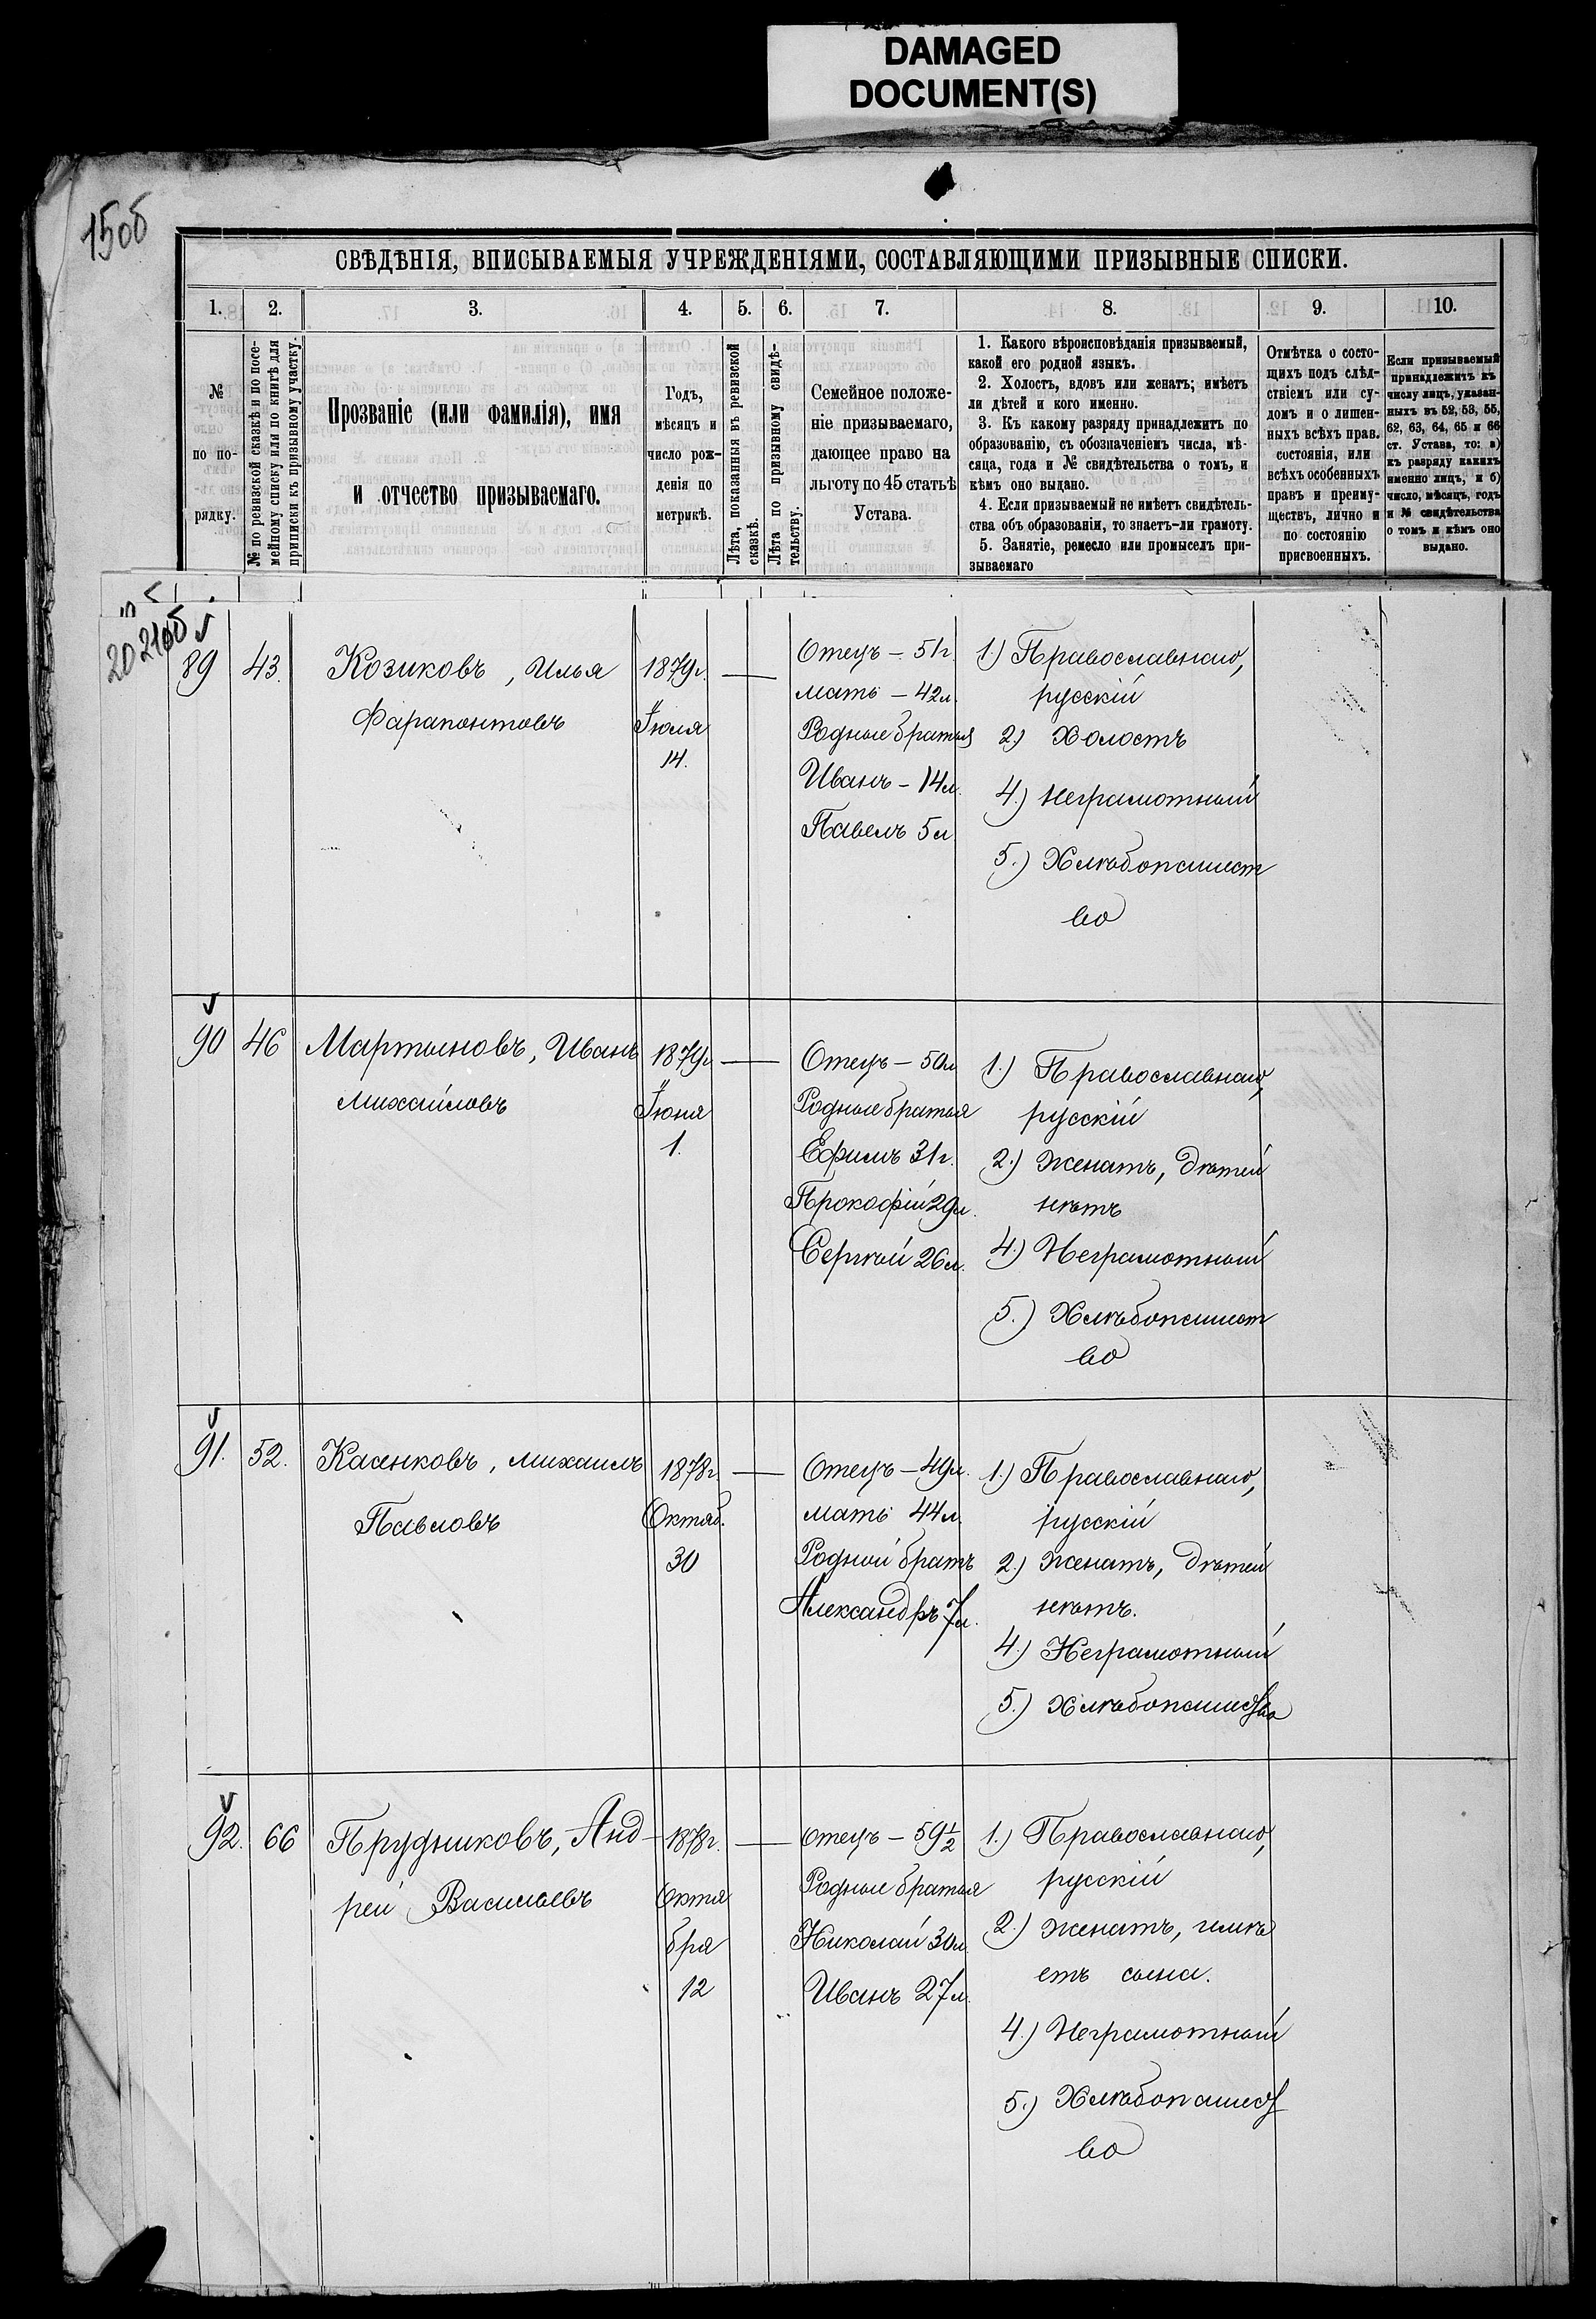 DAMAGED
DOCUMENT(S)
150б
СВѢДѢНІЯ, ВПИСЫВАЕМЫЯ УЧРЕЖДЕНІЯМИ, СОСТАВЛЯЮЩИМИ ПРИЗЫВНЫЕ СПИСКИ.
1. 2. 3. 4. 5. 6. 7. 8. 9. 10.
№
по по-
рядку.
№ по ревизской сказкѣ и по посе-
мейному списку или по книгѣ для
приписки къ призывному участку.
Прозваніе (или фамилія), имя
и отчество призываемаго.
Годъ,
мѣсяцъ и
число рож-
денія по
метрикѣ.
Лѣта, показанныя въ ревизской
сказкѣ.
Лѣта по призывному свидѣ-
тельству.
Семейное положе-
ніе призываемаго,
дающее право на
льготу по 45 статьѣ
Устава.
1. Какого вѣроисповѣданія призываемый,
какой его родной языкъ.
2. Холостъ, вдовъ или женатъ; имѣетъ
ли дѣтей и кого именно.
3. Къ какому разряду принадлежитъ по
образованію, съ обозначеніемъ числа, мѣ-
сяца, года и № свидѣтельства о томъ, и
кѣмъ оно выдано.
4. Если призываемый не имѣетъ свидѣтель-
ства объ образованіи, то знаетъ-ли грамоту.
5. Занятіе, ремесло или промыселъ при-
зываемаго
Отмѣтка о состо-
ящихъ подъ слѣд-
ствіемъ или су-
домъ и о лишен-
ныхъ всѣхъ прав.
состоянія, или
всѣхъ особенныхъ
правъ и преиму-
ществъ, лично и
по состоянію
присвоенныхъ.
Если призываемый
принадлежитъ къ
числу лицъ, указан-
ныхъ въ 52, 53, 55,
62, 63, 64, 65 и 66
ст. Устава, то: а)
къ разряду какихъ
именно лицъ, и б)
число, мѣсяцъ, годъ
и № свидѣтельства
о томъ и кѣмъ оно
выдано.
20
89
43.
Козиковъ, Илья
Фарапонтовъ
1879г.
Іюля
14.
Отецъ – 51г.
мать – 42л.
Родные братья
Иванъ – 14л.
Павелъ 5л.
1.) Православнаго,
русскій
2.) Холостъ
4.) Неграмотный
5.) Хлѣбопашест
во
90
46
Мартыновъ, Иванъ
Михайловъ
1879г
Іюня
1.
Отецъ – 50л
Родные братья
Ефимъ 31г.
Прокофій 29л.
Сергѣй 26л.
1.) Православнаго,
русскій
2.) Женатъ, дѣтей
нѣтъ
4.) Неграмотный
5.) Хлѣбопашест
во
91.
52.
Касенковъ, Михаилъ
Павловъ
1878г.
Октяб.
30
Отецъ – 49л.
мать 44л.
Родной братъ
Александръ 7л.
1.) Православнаго,
русскій
2.) Женатъ, дѣтей
нѣтъ.
4.) Неграмотный
5.) Хлѣбопашество
92.
66
Прудниковъ, Анд-
рей Васильевъ
1878г.
Октя
бря
12
отецъ – 59½
Родные братья
Николай 30л.
Иванъ 27л.
1.) Православнаго,
русскій
2.) Женатъ, имѣ
етъ сына.
4.) Неграмотный
5.) Хлѣбопашест
во